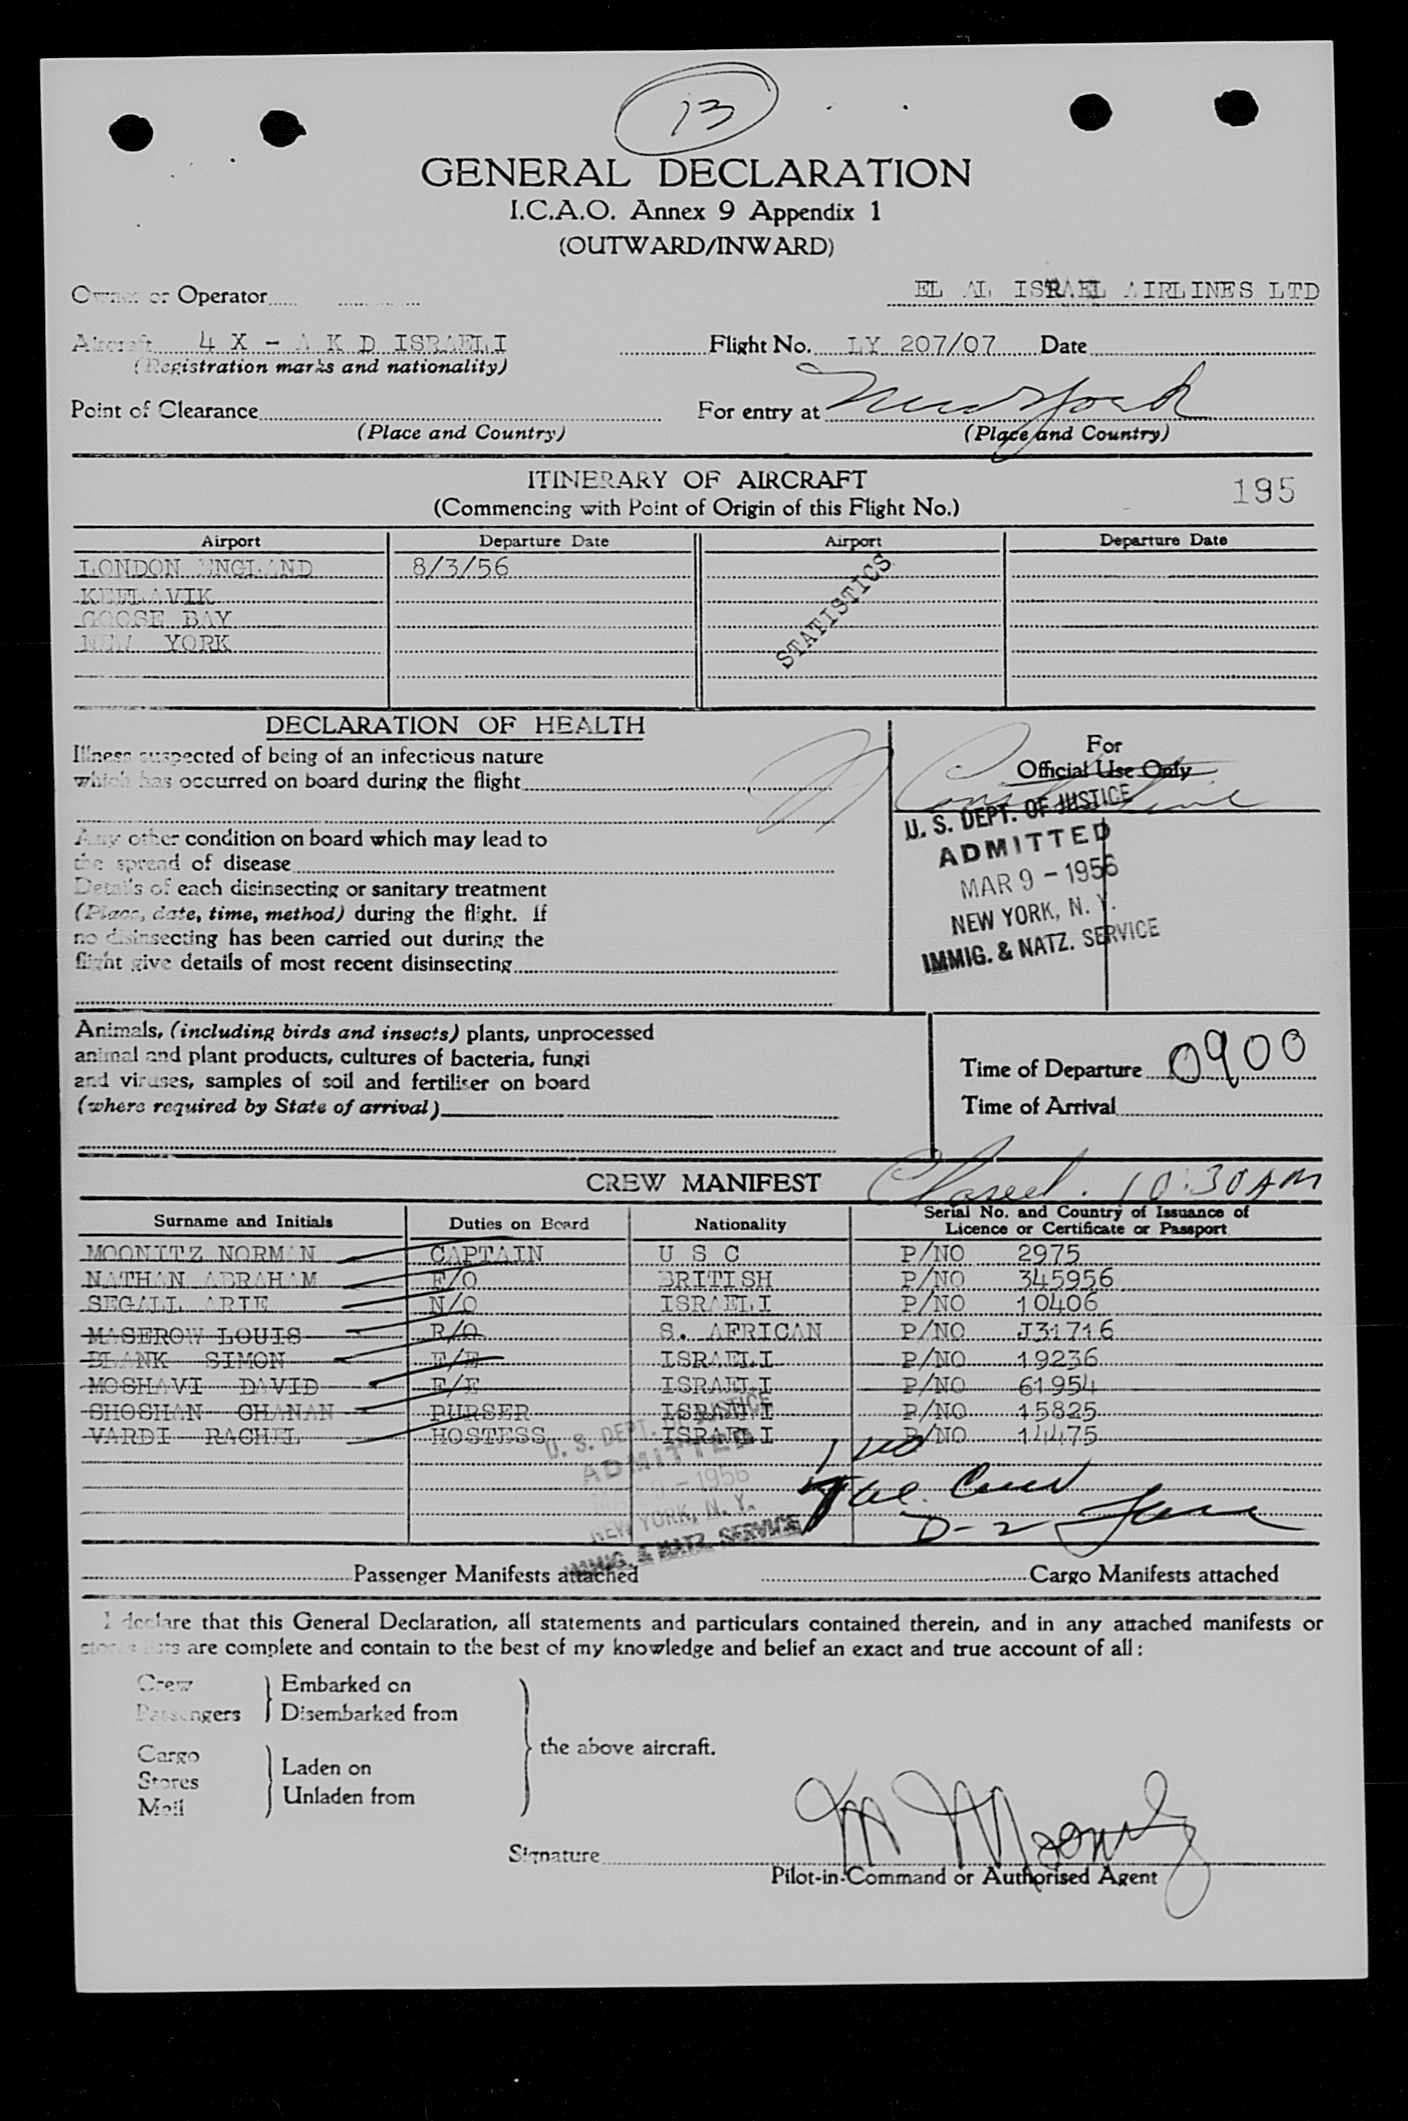 13
GENERAL DECLARATION
I.C.A.O. Annex 9 Appendix 1
(OUTWARD/INWARD)
Owner or Operator EL AL ISRAEL AIRLINES LTD
Aircraft 4 X - A K D ISRAELI Flight No. LY 207/07 Date
(Registration marks and nationality)
Point of Clearance For entry at New York
(Place and Country) (Place and Country)
ITINERARY OF AIRCRAFT
(Commencing with Point of Origin of this Flight No.) 195
Airport Departure Date Airport Departure Date
LONDON ENGLAND 8/3/56
KEFLAVIK
GOOSE BAY
NEW YORK
STATISTICS
DECLARATION OF HEALTH
Illness suspected of being of an infectious nature
which has occurred on board during the flight
Any other condition on board which may lead to
the spread of disease
Details of each disinsecting or sanitary treatment
(Place, date, time, method) during the flight. If
no disinsecting has been carried out during the
flight give details of most recent disinsecting
For
Official Use Only
U. S. DEPT. OF JUSTICE
ADMITTED
MAR 9 - 1956
NEW YORK, N. Y.
IMMIG. & NATZ. SERVICE
Animals, (including birds and insects) plants, unprocessed
animal and plant products, cultures of bacteria, fungi
and viruses, samples of soil and fertiliser on board
(where required by State of arrival)
Time of Departure 0900
Time of Arrival
CREW MANIFEST Closed. 10:30 AM
Surname and Initials Duties on Board Nationality Serial No. and Country of Issuance of
Licence or Certificate or Passport
MOONITZ NORMAN CAPTAIN U S C P/NO 2975
NATHAN ABRAHAM F/O BRITISH P/NO 345956
SEGALL ARIE N/O ISRAELI P/NO 10406
MASEROW LOUIS R/O S. AFRICAN P/NO J31716
BLANK SIMON F/E ISRAELI P/NO 19236
MOSHAVI DAVID F/E ISRAELI P/NO 61954
SHOSHAN OHANAN PURSER ISRAELI P/NO 15825
VARDI RACHEL HOSTESS ISRAELI P/NO 14475
U. S. DEPT. OF JUSTICE
ADMITTED
MAR 9 - 1956
NEW YORK, N. Y.
IMMIG. & NATZ. SERVICE
Crew
D-2
Passenger Manifests attached Cargo Manifests attached
I declare that this General Declaration, all statements and particulars contained therein, and in any attached manifests or
stores lists are complete and contain to the best of my knowledge and belief an exact and true account of all:
Crew Embarked on
Passengers Disembarked from
the above aircraft.
Cargo
Stores Laden on
Mail Unladen from
Signature M Moonitz
Pilot-in-Command or Authorised Agent